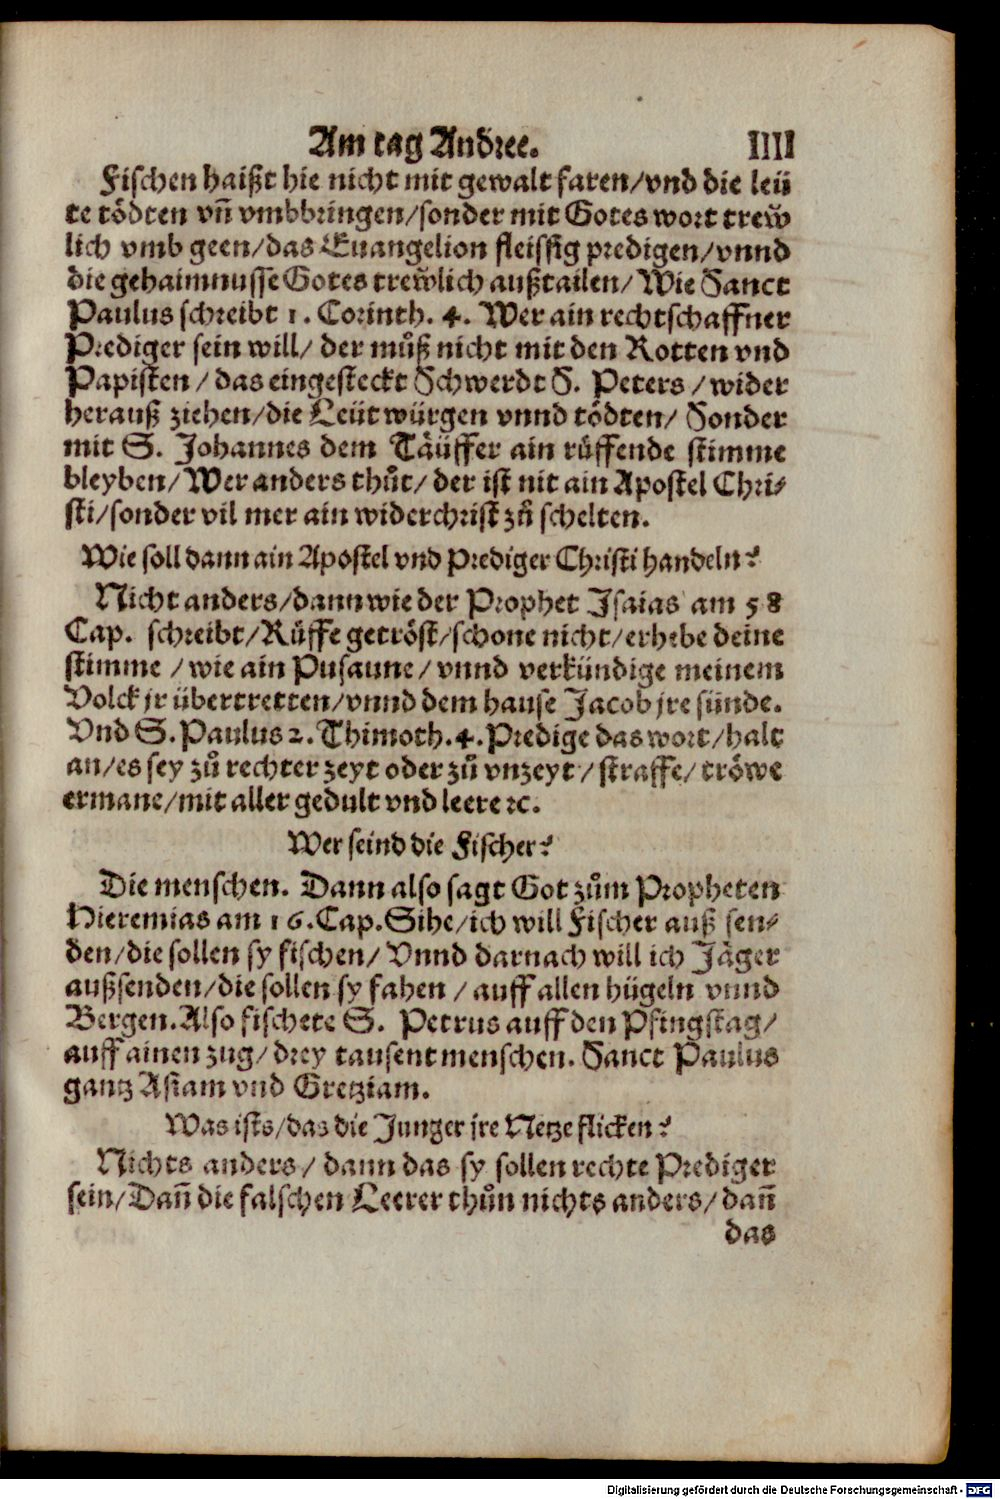 Am tag Andree. IIII
Fischen haißt hie nicht mit gewalt faren/vnd die leü
te tödten vñ vmbbringen/sonder mit Gotes wort trew̆
lich vmb geen/das Euangelion fleissig predigen/vnnd
die gehaimnusse Gotes trew̆lich außtailen/ Wie Sanct
Paulus schreibt 1. Corinth. 4. Wer ain rechtschaffner
Prediger sein will/ der můß nicht mit den Rotten vnd
Papisten / das eingesteckt Schwerdt S. Peters / wider
herauß ziehen/die Leüt würgen vnnd tödten/ Sonder
mit S. Johannes dem Täüffer ain rüffende stimme
bleyben/ Wer anders thůt/ der ist nit ain Apostel Chri⸗
sti/sonder vil mer ain widerchrist zů schelten.
Wie soll dann ain Apostel vnd Prediger Christi handeln?
Nicht anders/dann wie der Prophet Isaias am 58
Cap. schreibt/Rüffe getröst/schone nicht/erhebe deine
stimme / wie ain Pusaune / vnnd verkündige meinem
Volck jr übertretten/vnnd dem hause Jacob jre sünde.
Vnd S. Paulus 2. Thimoth. 4. Predige das wort/halt
an/es sey zů rechter zeyt oder zů vnzeyt / straffe/ tröwe
ermane/mit aller gedult vnd leere ꝛc.
Wer seind die Fischer?
Die menschen. Dann also sagt Got zům Propheten
Hieremias am 16. Cap. Sihe/ich will Fischer auß sen⸗
den/die sollen sy fischen/ Vnnd darnach will ich Jäger
außsenden/die sollen sy fahen / auff allen hügeln vnnd
Bergen. Also fischete S. Petrus auff den Pfingstag/
auff ainen zug/ drey tausent menschen. Sanct Paulus
gantz Asiam vnd Gretziam.
Was ists/das die Junger jre Netze flicken?
Nichts anders/ dann das sy sollen rechte Prediger
sein/Dañ die falschen Leerer thůn nichts anders/ dañ
das
Digitalisierung gefördert durch die Deutsche Forschungsgemeinschaft - DFG